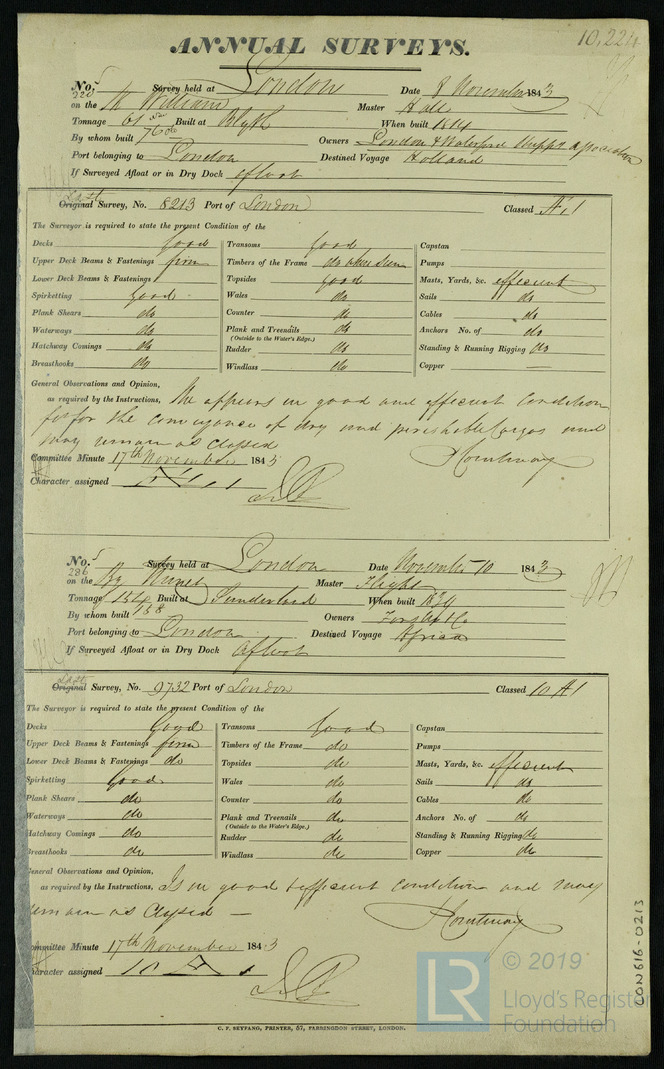 10,224
ANNUAL SURVEYS.
No. 5 Survey held at London Date 8 November 1843
220 on the William Master Hall
Tonnage 61 Built at Blyth When built 1814
By whom built 76 Owners London & Waterford Shippg Association
Port belonging to London Destined Voyage Holland
If Surveyed Afloat or in Dry Dock afloat
Last
Original Survey, No. 8213 Port of London Classed Æ 1
The Surveyor is required to state the present Condition of the
Decks Good Transoms Good Capstan
Upper Deck Beams & Fastenings firm Timbers of the Frame do when seen Pumps
Lower Deck Beams & Fastenings Topsides good Masts, Yards, &c. efficient
Spirketting Good Wales do Sails do
Plank Shears do Counter do Cables do
Waterways do Plank and Treenails do Anchors No. of do
(Outside to the Water's Edge.)
Hatchway Comings do Rudder do Standing & Running Rigging do
Breasthooks do Windlass do Copper —
General Observations and Opinion,
as required by the Instructions, She appears in good and efficient condition
fit for the conveyance of dry and perishable Cargoes and
may remain as classed
Committee Minute 17th November 1843
Character assigned Æ 1
No. 5 Survey held at London Date November 10 1843
286 on the Bg Master Flight
Tonnage 154 Built at Sunderland When built 1834
By whom built 158 Owners Forster & Co
Port belonging to London Destined Voyage Africa
If Surveyed Afloat or in Dry Dock Afloat
Last
Original Survey, No. 9732 Port of London Classed 10 A 1
The Surveyor is required to state the present Condition of the
Decks Good Transoms Good Capstan
Upper Deck Beams & Fastenings firm Timbers of the Frame do Pumps
Lower Deck Beams & Fastenings do Topsides do Masts, Yards, &c. efficient
Spirketting Good Wales do Sails do
Plank Shears do Counter do Cables do
Waterways do Plank and Treenails do Anchors No. of do
(Outside to the Water's Edge.)
Hatchway Comings do Rudder do Standing & Running Rigging do
Breasthooks do Windlass do Copper do
General Observations and Opinion,
as required by the Instructions, Is in good & efficient condition and may
remain as Classed —
Committee Minute 17th November 1843
Character assigned 10 A 1
C. F. SEYFANG, PRINTER, 57, FARRINGDON STREET, LONDON.
CON616-0213
LR © 2019
Lloyd's Register
Foundation